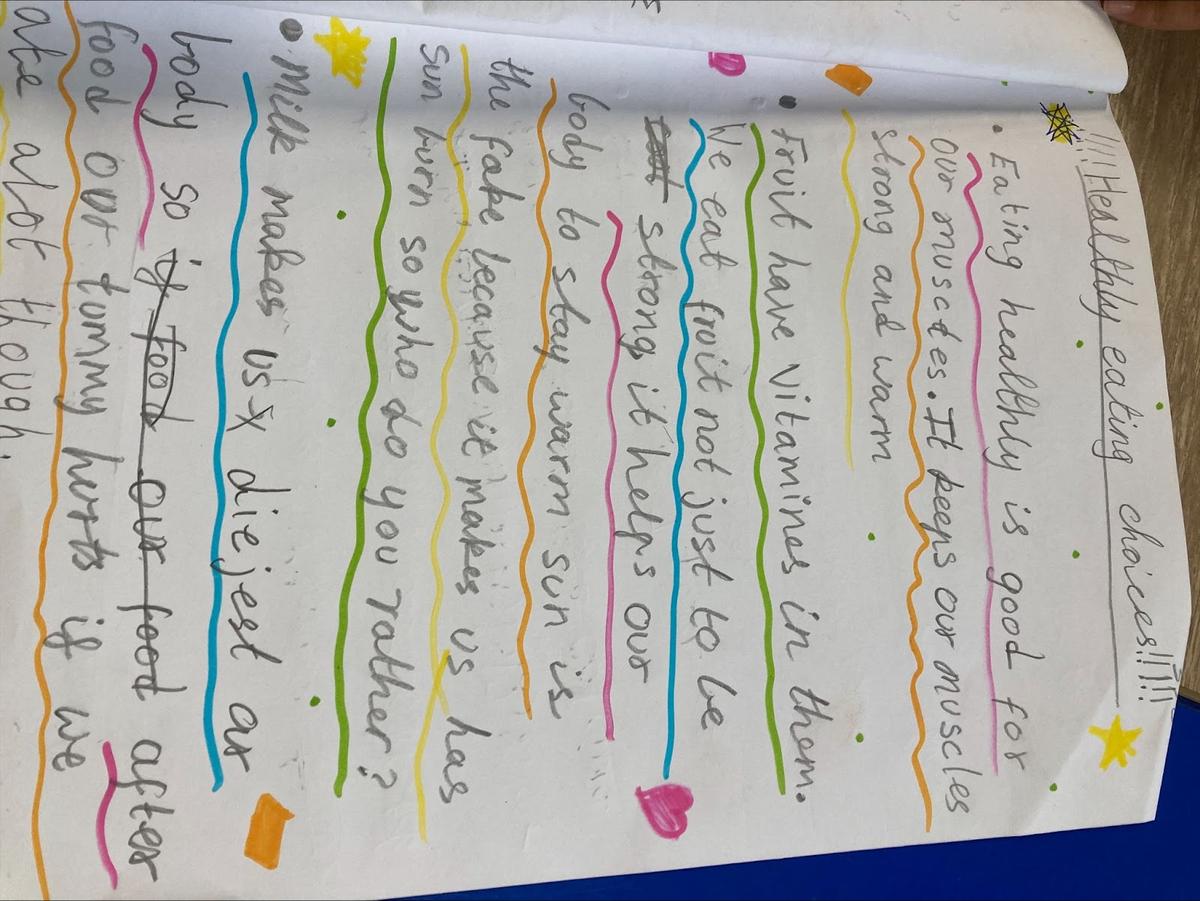 !!!!Healthly eating choices!!!!!
• Eating healthly is good for
our muscles. It keeps our muscles
strong and warm
• Fruit have vitamines in them.
We eat fruit not just to be
strong it helps our
body to stay warm sun is
the fake because it makes us has
sun burn so who do you rather?
• Milk makes us x diejest ar
body so if food our food after
food our tommy hurts if we
ate alot though.